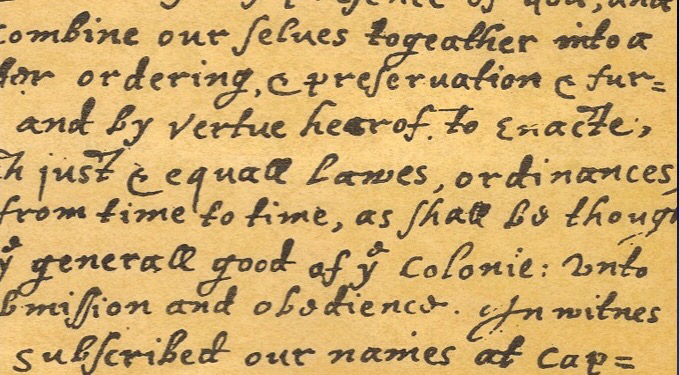 combine our selves togeather into a
ordering, & preservation & fur=
and by vertue hearof to enacte,
just & equall lawes, ordinances,
from time to time, as shall be though
yᵉ generall good of yᵉ Colonie: unto
bmission and obedience. In witnes
subscribed our names at Cap=